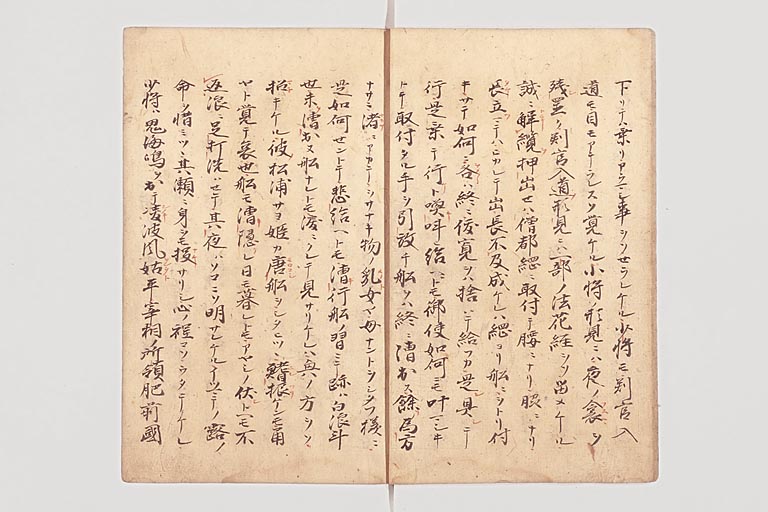 下リテハ乗リアラマシ事ヲソセラレケル少将モ判官入
道モ目モアテラレスソ覚ケル小将ノ形見ニハ夜ノ衾ヲノ
残置ク判官入道形見ニハ一部ノ法花経ヲソ出メケル
誠ニ解纜押出セハ僧都綱ニ取付テ腰ニナリ脇ニナリ
長立ニテハヒカレテ出長不及成ケレハ綱ヨリ船ニヲトリ付
キサテ如何ニ各ハ終ニ俊寛ヲハ捨ハテ給フカ是具シテ
行是乗テ行ト喚叫ヒ給ヘトモ御使如何ニモ叶マシキ
トテ取付タル手ヲ引放テ船ヲハ終ニ漕出ス餘為方
ナサニ渚ニアカテヲサナキ物ノ乳女ヤ母ナントヲシタフ様ニ
是如何セントテ悲給ヘトモ漕行船ノ習ニテ跡ハ白浪斗
世未漕出ヌ船ナレトモ涙ニクレテ見サリケレハ奥ノ方ヲソ
招キケル彼松浦サヨ姫カ唐船ヲシタヒツヽ鰭振ケンモ角
ヤト覚テ哀也船モ漕隠レ日モ暮レトモアヤシノ伏トヘモ不
返浪ニ足打洗ハセテ其夜ハソコニソ明サレケルイツマテノ露ノ
命ヲ惜ミツヽ其瀬ニ身ヲモ投サリシ心ノ程コソウタテシケレ
少将ハ鬼海嶋ヲ出テ凌波風姑平宰相所領肥前國